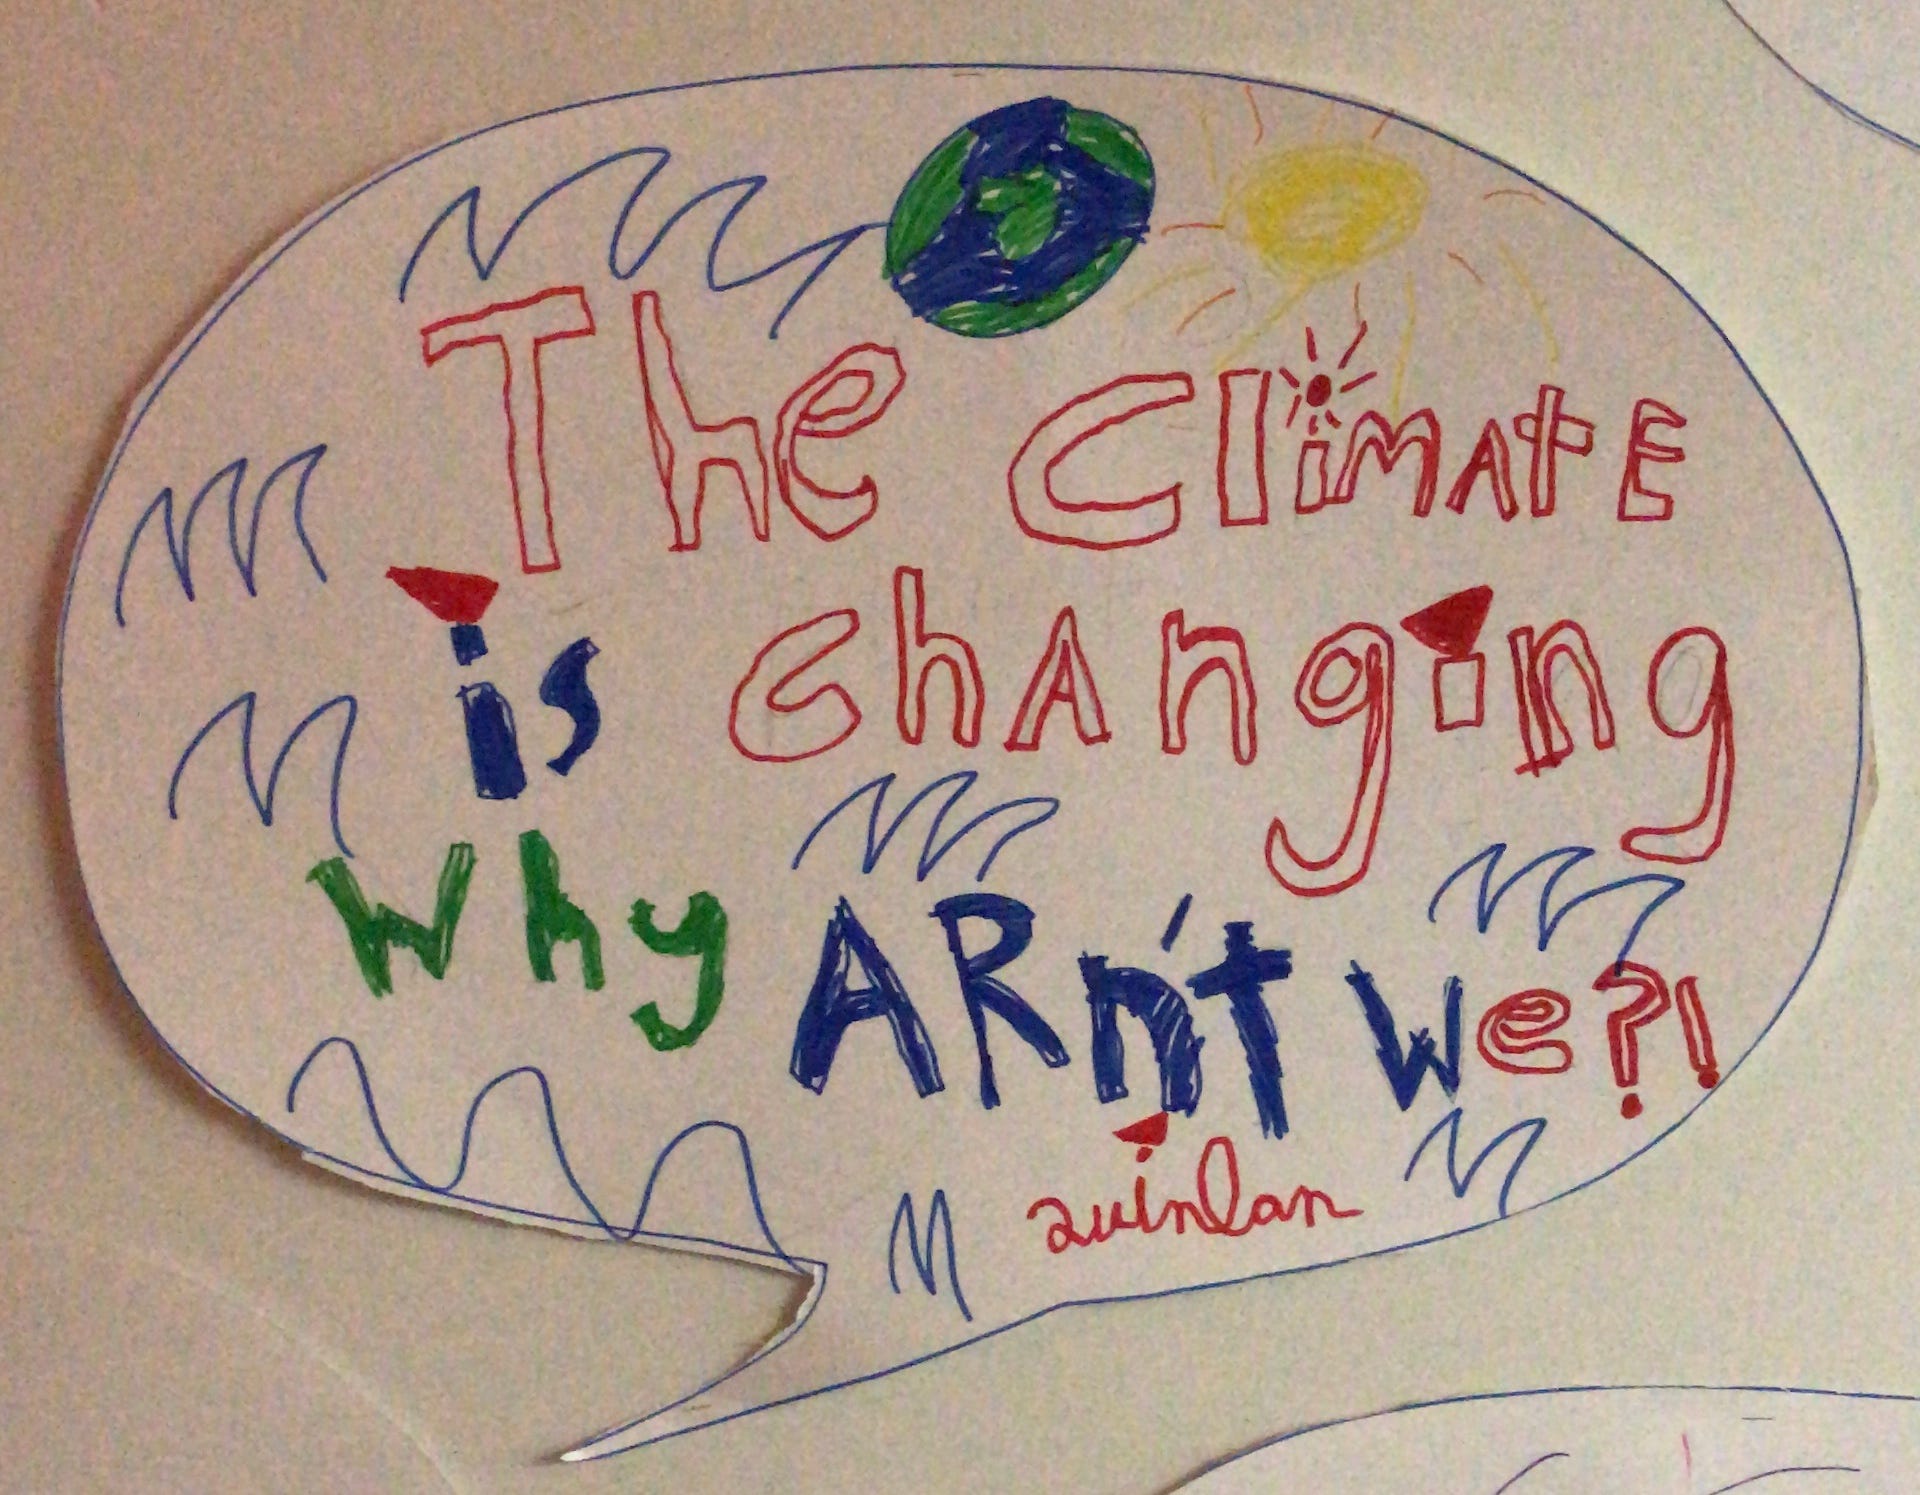 The CliMATE
is chAnging
Why ARn't we?!
quinlan